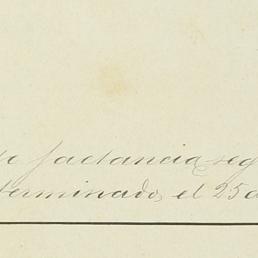 de jactancia, seg
terminado, el 25 d